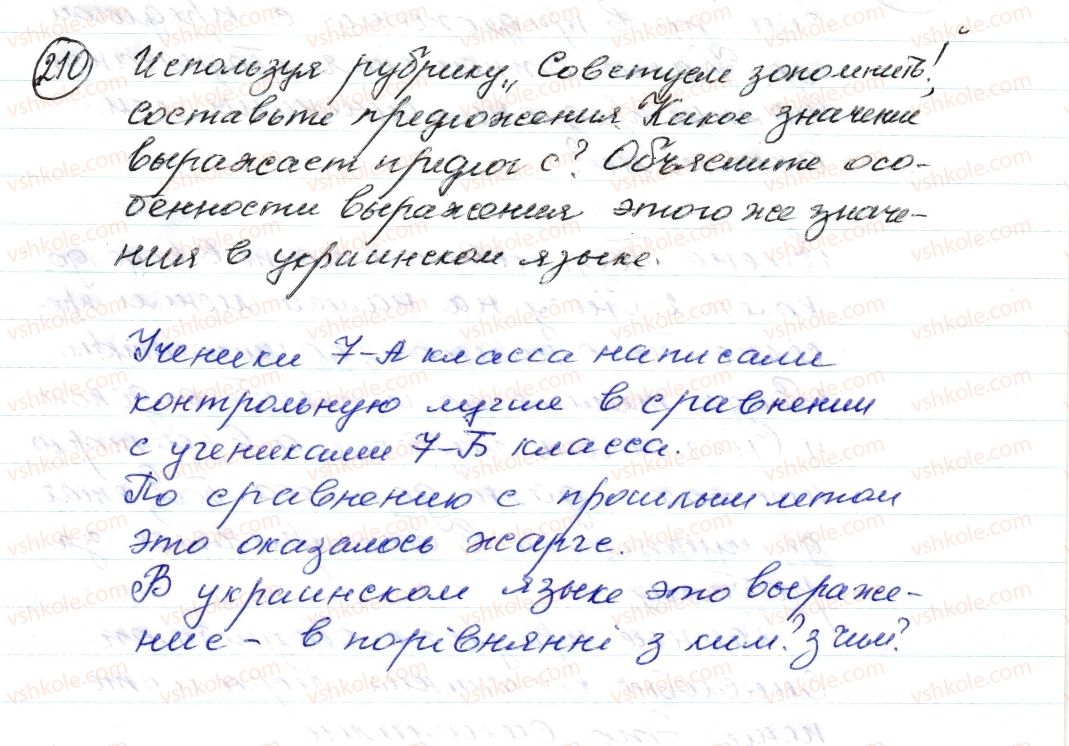 210 Используя рубрику „Советуем запомнить!"
составьте предложения. Какое значение
выражает предлог с? Объясните осо-
бенности выражения этого же значе-
ния в украинском языке.
Ученики 7-А класса написали
контрольную лучше в сравнении
с учениками 7-Б класса.
По сравнению с прошлым летом
это оказалось жарче.
В украинском языке это выраже-
ние - в порівнянні з ким? з чим?